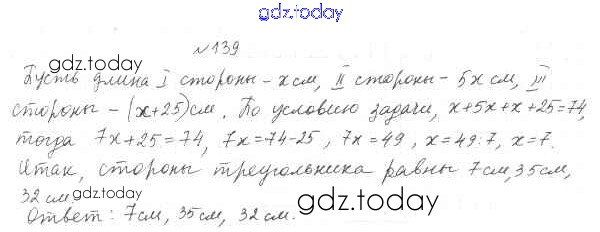 gdz.today
№139
gdz.today
Пусть длина I стороны - x см, II стороны - 5x см, III
стороны - (x+25) см. По условию задачи, x+5x+x+25=74,
тогда 7x+25=74, 7x=74-25, 7x=49, x=49:7, x=7.
Итак, стороны треугольника равны 7см, 35см,
32 см.
gdz.today
gdz.today
Ответ: 7см, 35см, 32см.